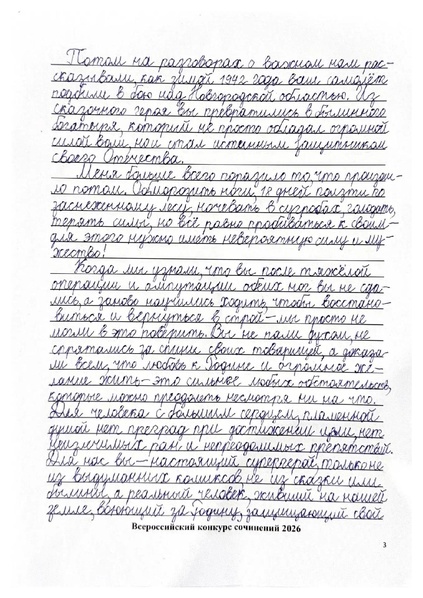 Потом на разговорах о важном нам рас-
сказывали, как зимой 1942 года ваш самолёт
подбили в бою над Новгородской областью. Из
сказочного героя вы превратились в былинного
богатыря, который не просто обладал огромной
силой воли, но и стал истинным защитником
своего Отечества.
Меня больше всего поразило то, что произош-
ло потом. Обморозить ноги, 18 дней ползти по
заснеженному лесу, ночевать в сугробах, голодать,
терять силы, но всё равно пробиваться к своим-
для этого нужно иметь невероятную силу и му-
жество!
Когда мы узнали, что вы после тяжёлой
операции и ампутации обеих ног вы не сда-
лись, а заново научились ходить, чтобы восстано-
виться и вернуться в строй – мы просто не
могли в это поверить. Вы не пали духом, не
спрятались за спины своих товарищей, а доказа-
ли всем, что любовь к Родине и огромное же-
лание жить – это сильнее любых обстоятельств,
которые можно преодолеть несмотря ни на что.
Для человека с большим сердцем, пламенной
душой нет преград при достижении цели, нет
неизлечимых ран и непреодолимых препятствий.
Для нас вы – настоящий супергерой, только не
из выдуманных комиксов, не из сказки или
былины, а реальный человек, живший на нашей
земле, воюющий за Родину, защищающий свой
Всероссийский конкурс сочинений 2026
3